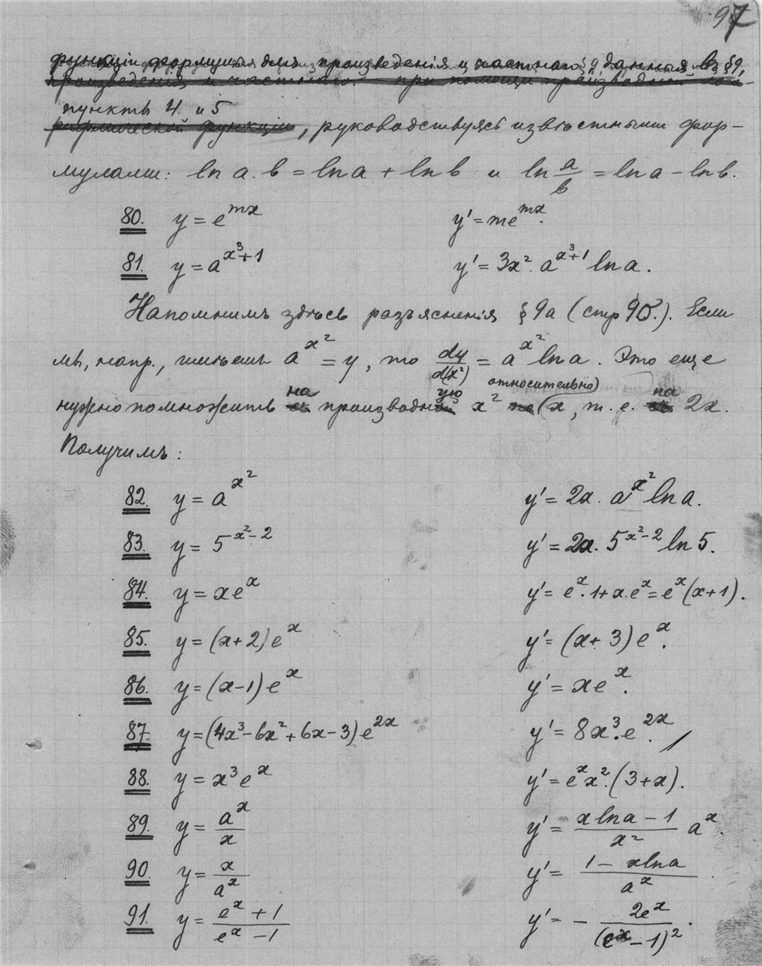 97
функцій формулы для произведенія и частнаго, данныя въ § 9,
произведенія и частнаго при помощи производной
пунктъ 4 и 5
функціи, руководствуясь извѣстными фор-
мулами: ln a.b = ln a + ln b и ln a/b = ln a - ln b.
80. y = e^{mx} y' = me^{mx}.
81. y = a^{x³+1} y' = 3x². a^{x³+1} ln a.
Напомнимъ здѣсь разъясненія § 9а (стр 90.). Если
мы, напр., имѣемъ a^{x²} = y, то dy/d(x²) = a^{x²} ln a. Это еще
нужно помножить на производную x² относительно x, т. е. на 2x.
Получимъ:
82. y = a^{x²} y' = 2x. a^{x²} ln a.
83. y = 5^{x²-2} y' = 2x. 5^{x²-2} ln 5.
84. y = xe^x y' = e^x. 1 + x. e^x = e^x (x+1).
85. y = (x+2) e^x y' = (x+3) e^x.
86. y = (x-1) e^x y' = xe^x.
87. y = (4x³-6x²+6x-3) e^{2x} y' = 8x³. e^{2x}.
88. y = x³e^x y' = e^x x². (3+x).
89. y = a^x/x y' = (x ln a - 1)/x² a^x.
90. y = x/a^x y' = (1 - x ln a)/a^x
91. y = (e^x + 1)/(e^x - 1) y' = - 2e^x/(e^x - 1)².